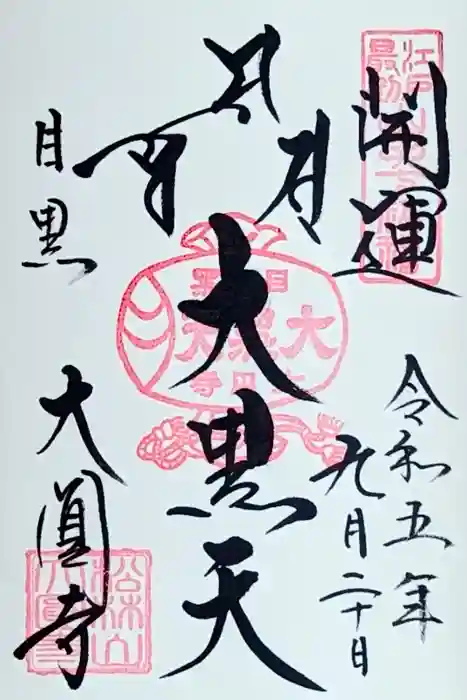 開運
大黒天
令和五年
九月二十日
目黒
大圓寺
江戸
最初
山
七
神
目黒
大黒天
大円寺
松林山
大圓寺